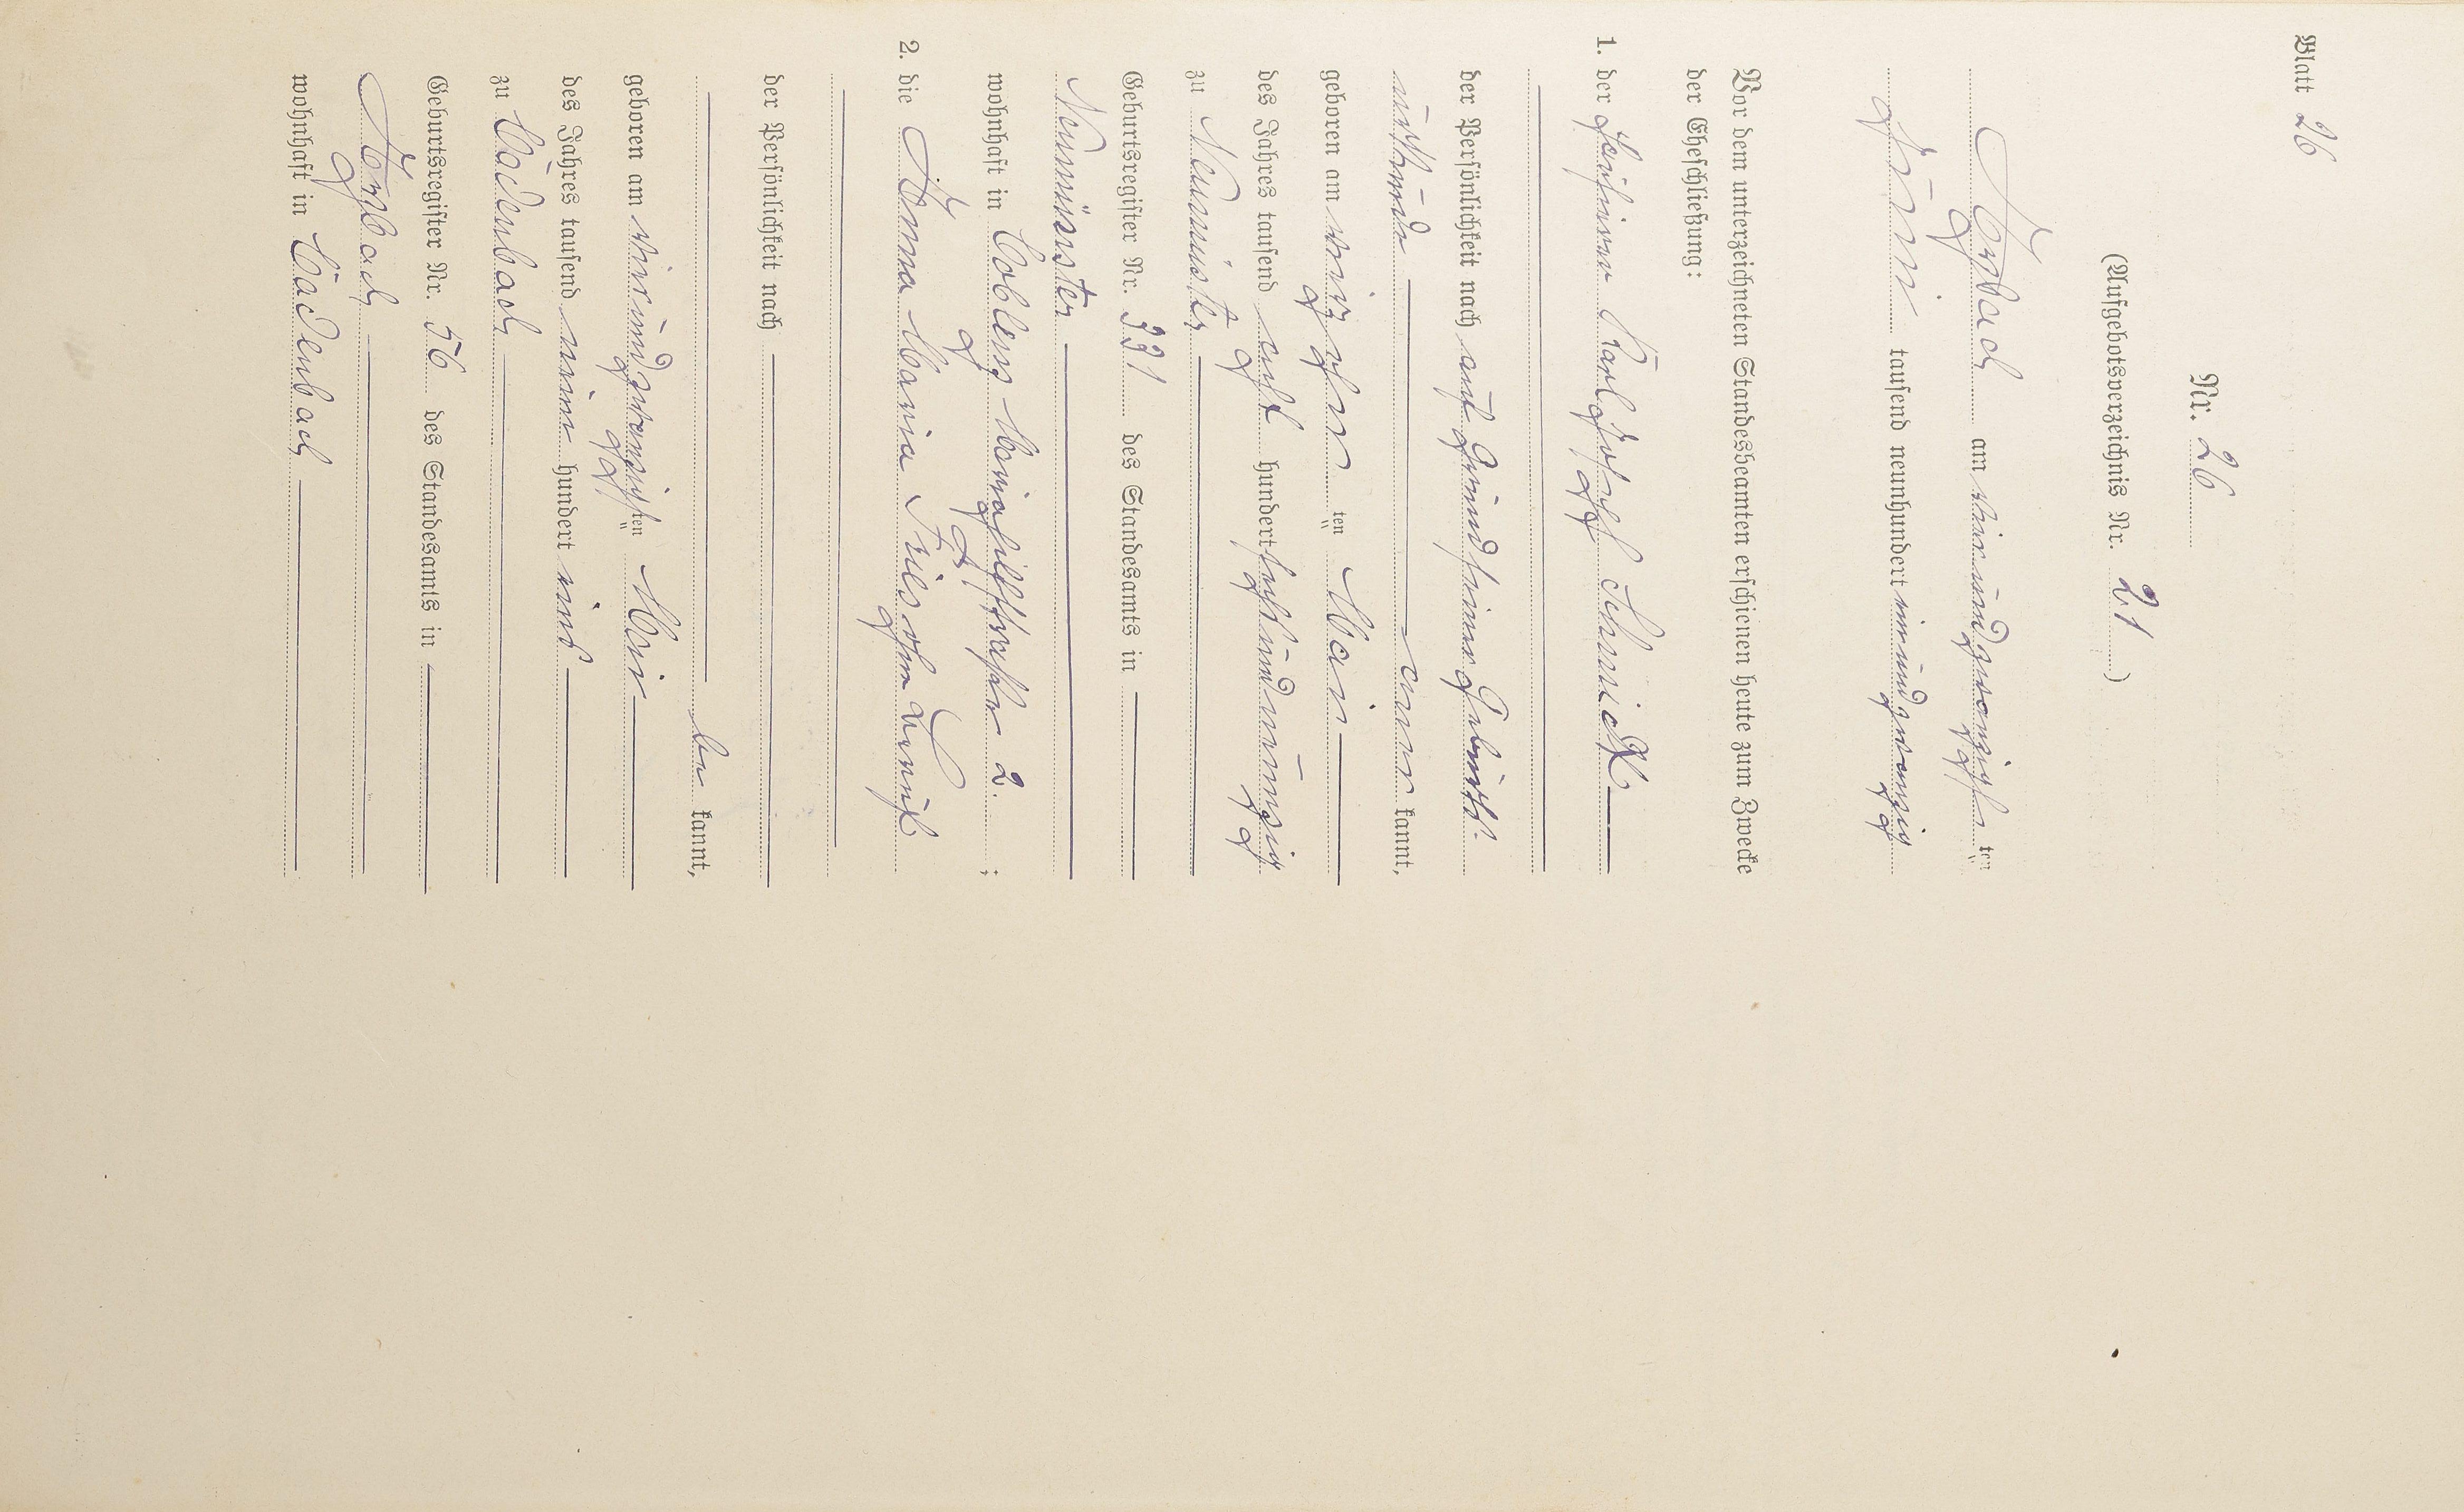 Blatt 26
Nr. 26
(Aufgebotsverzeichnis Nr. 21)
Arzbach am vierundzwanzigsten
Juni tausend neunhundert einundzwanzig
Vor dem unterzeichneten Standesbeamten erschienen heute zum Zwecke
der Eheschließung:
1. der Karl Joseph Schmidt
der Persönlichkeit nach auf Grund seiner Geburts-
urkunde aner kannt,
geboren am vierzehn ten Mai
des Jahres tausend acht hundert sechsundneunzig
zu Neumünster
Geburtsregister Nr. 331 des Standesamts in
Neumünster
wohnhaft in Coblenz Mariahilfstraße 2. ;
2. die Anna Maria Fries ohne Beruf
der Persönlichkeit nach
be kannt,
geboren am vierundzwanzigsten Mai
des Jahres tausend neun hundert eins
zu Cadenbach
Geburtsregister Nr. 56 des Standesamts in
Arzbach
wohnhaft in Cadenbach